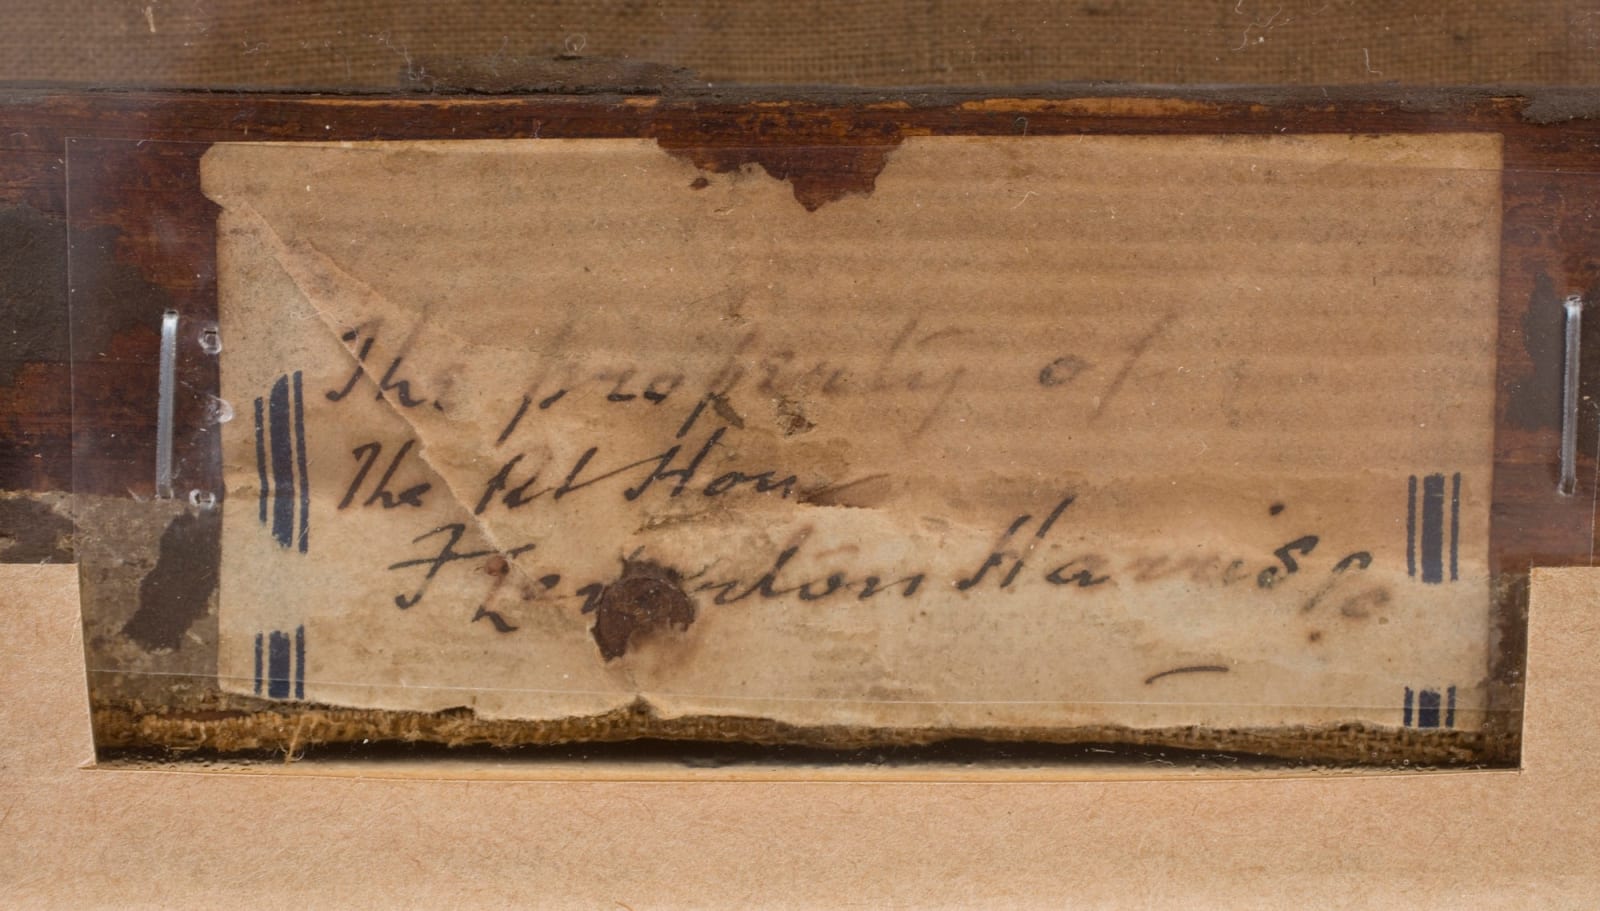 The property of
The Rt Hon
F Leverton Harris Pc